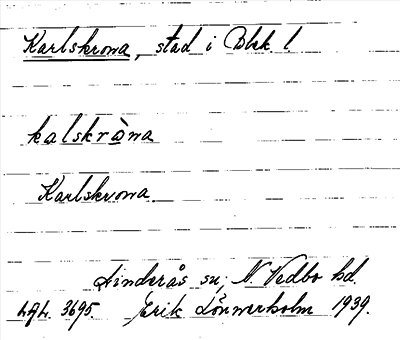 Karlskrona, stad i Blek. l.
kalskròna
Karlskrona
Linderås sn, N. Vedbo hd.
LAL. 3695. Erik Lönnerholm 1939.